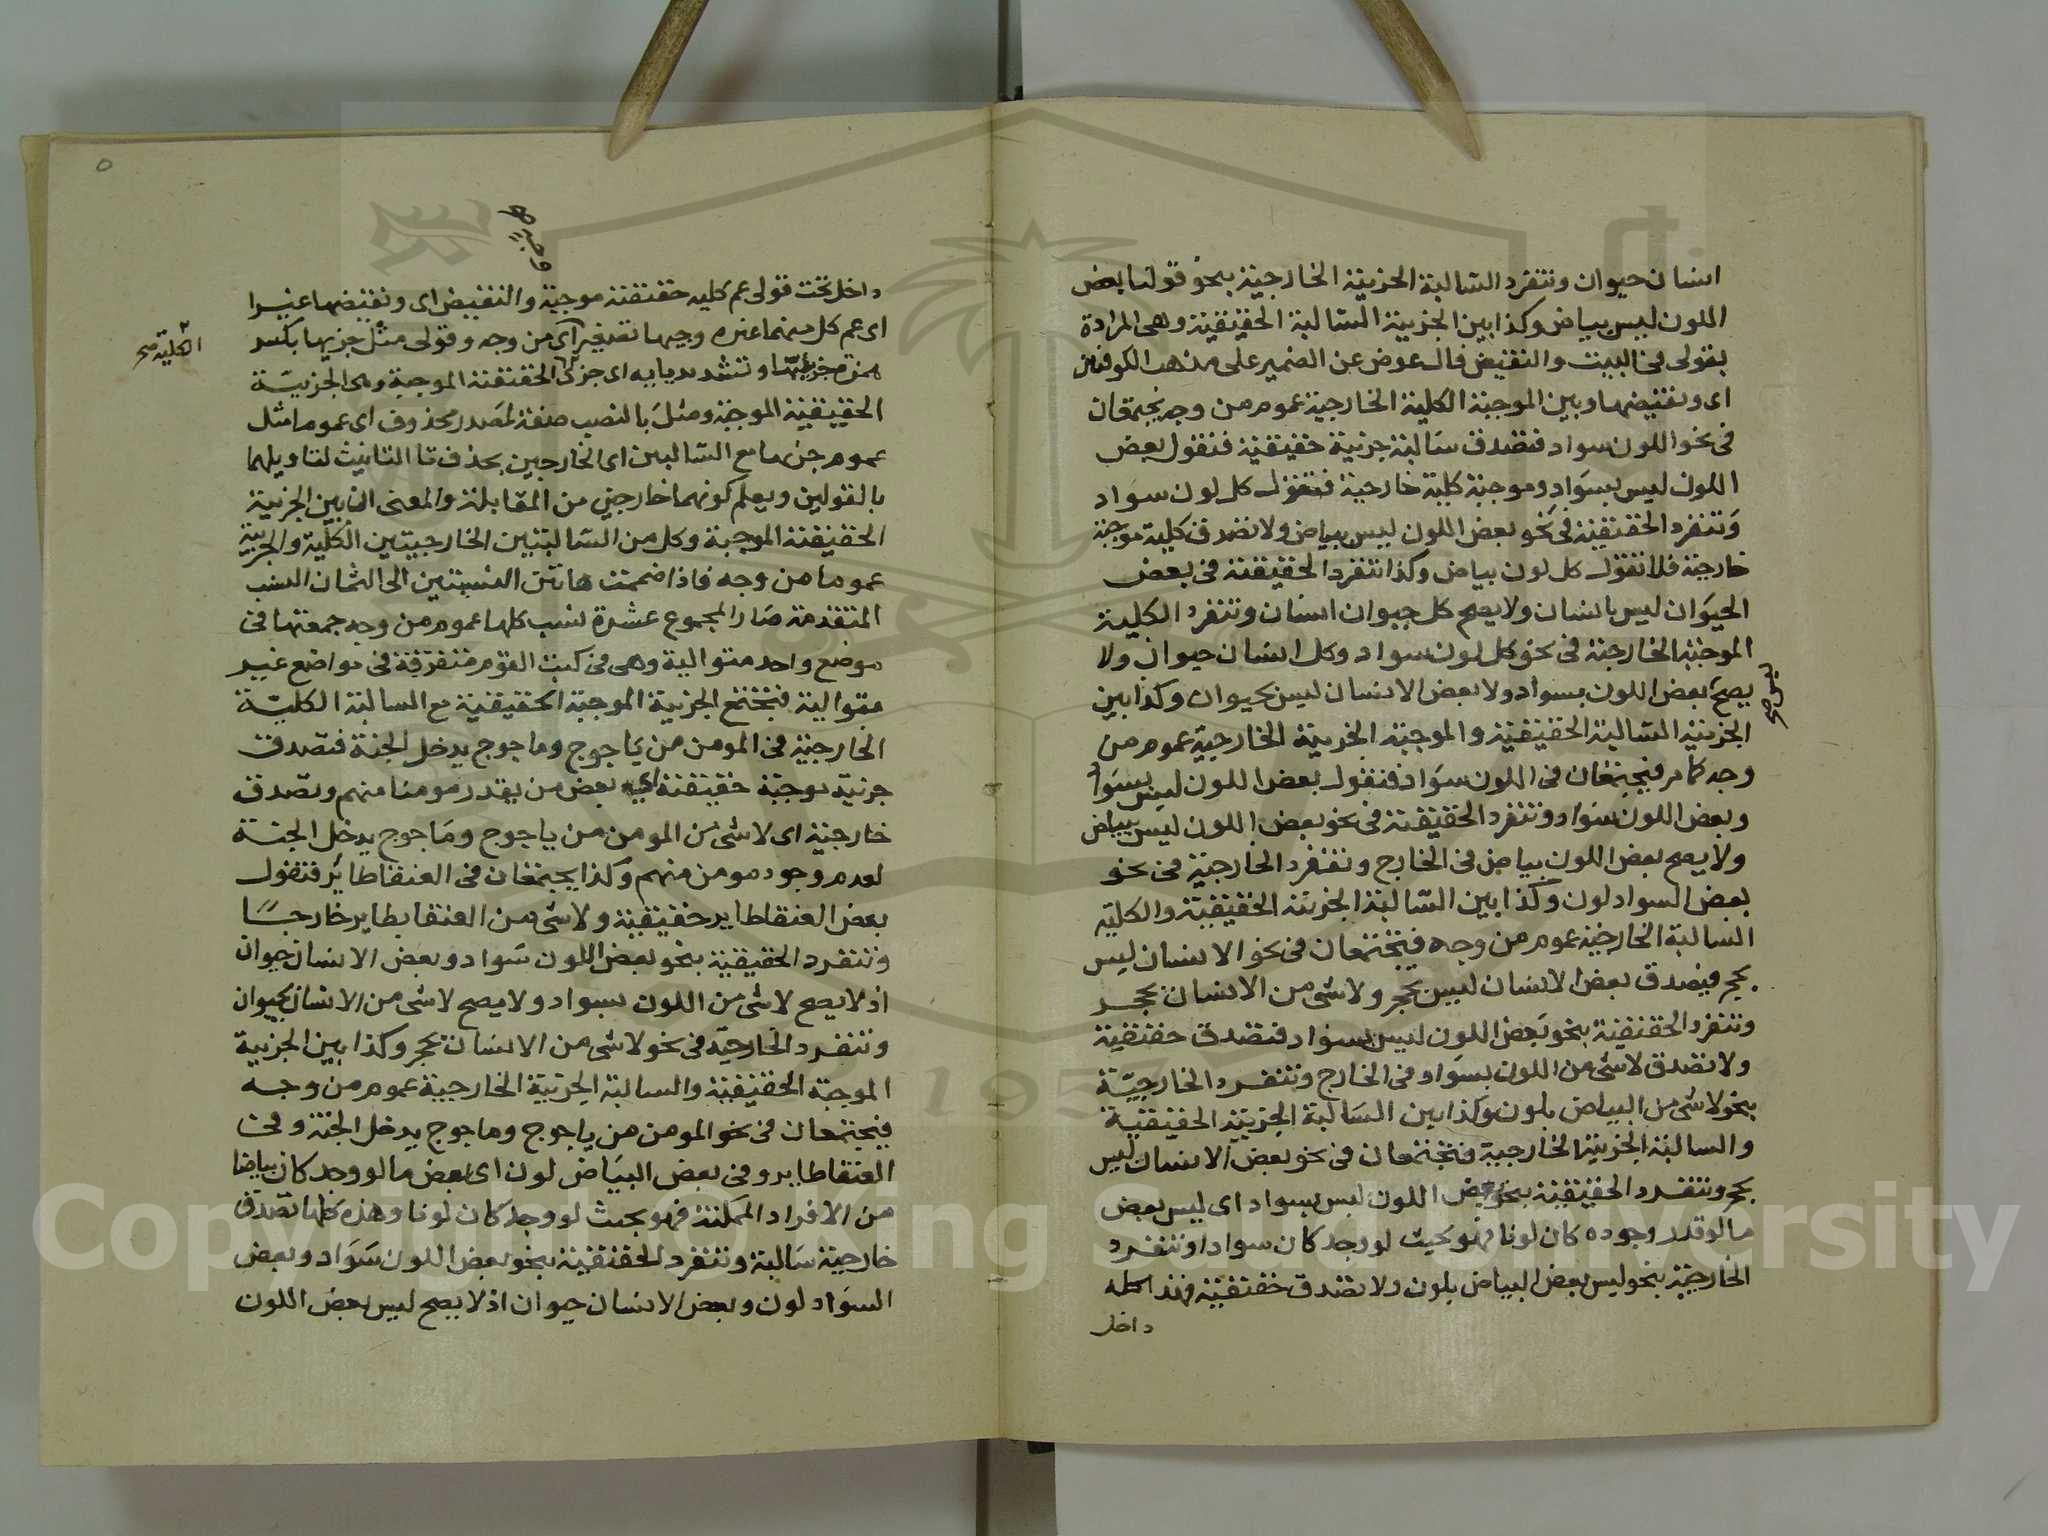 انسان حيوان وتنفرد السالبة الجزيية الخارجية بنحو قولنا بعض
اللون ليس ببياض وكذا بين الجزيية السالبة الحقيقية وهى المرادة
بقولى فى البيت والنقيض فال عوض عن الضمير على مذهب الكوفيين
اى ونقيضها وبين الموجبة الكلية الخارجية عموم من وجه يجتمعان
فى نحو اللون سواد فتصدق سالبة جزيية حقيقية فنقول بعض
اللون ليس بسواد وموجبة كلية خارجية فنقول كل لون سواد
وتنفرد الحقيقية فى نحو بعض اللون ليس ببياض ولا تصدق كلية موجبة
خارجية فلا نقول كل لون بياض وكذا تنفرد الحقيقية فى بعض
الحيوان ليس بانسان ولا يصح كل حيوان انسان وتنفرد الكلية
الموجبة الخارجية فى نحو كل لون سواد وكل انسان حيوان ولا
يصح بعض اللون بسواد ولا بعض الانسان ليس بحيوان وكذا بين
ليس صح
الجزيية السالبة الحقيقية والموجبة الجزيية الخارجية عموم من
وجه كما مر فيجتمعان فى اللون سواد فنقول بعض اللون ليس بسواد
وبعض اللون سواد وتنفرد الحقيقية فى نحو بعض اللون ليس ببياض
ولا يصح بعض اللون بياض فى الخارج وتنفرد الخارجية فى نحو
بعض السواد لون وكذا بين السالبة الجزيية الحقيقية والكلية
السالبة الخارجية عموم من وجه فيجتمعان فى نحو الانسان ليس
بحجر فيصدق بعض الانسان ليس بحجر ولا شى من الانسان بحجر
وتنفرد الحقيقية بنحو بعض اللون ليس بسواد فتصدق حقيقية
ولا تصدق لا شى من اللون بسواد فى الخارج وتنفرد الخارجية
بنحو لا شى من البياض بلون وكذا بين السالبة الجزيية الحقيقية
والسالبة الجزيية الخارجية فتجتمعان فى نحو بعض الانسان ليس
بحجر وتنفرد الحقيقية بنحو بعض اللون ليس بسواد اى ليس بعض
ما لو قدر وجوده كان لونا فهو بحيث لو وجد كان سوادا وتنفرد
الخارجية بنحو ليس بعض البياض بلون ولا تصدق حقيقية فهذا كله
داخل
٥
داخل تحت قولى عم كليه حقيقية موجبة والنقيض اى ونقيضها غيرا
اى عم كل منهما غيره وجها تمييز اى من وجه وقولى مثل جزيها بكسر
همزة جزيها وتشديد يايه اى جزى الحقيقية الموجبة وهى الجزيية
الكلية صح
الحقيقية الموجبة ومثل بالنصب صفة لمصدر محذوف اى عموما مثل
عموم جزها مع السالبين اى الخارجين بحذف تا التانيث لتاويلهما
بالقولين ويعلم كونهما خارجين من المقابلة والمعنى ان بين الجزيية
الحقيقية الموجبة وكل من السالبتين الخارجيتين الكلية والجزيية
عموما من وجه فاذا ضممت هاتين النسبتين الى الثمان النسب
المتقدمة صار المجموع عشرة نسب كلها عموم من وجه جمعتها فى
موضع واحد متوالية وهى فى كتب القوم متفرقة فى مواضع غير
متوالية فتجتمع الجزيية الموجبة الحقيقية مع السالبة الكلية
الخارجية فى المومن من ياجوج وماجوج يدخل الجنة فتصدق
جزيية موجبة حقيقية اى بعض من يقدر مومنا منهم وتصدق
خارجية اى لا شى من المومن من ياجوج وماجوج يدخل الجنة
لعدم وجود مومن منهم وكذا يجتمعان فى العنقا طاير فتقول
بعض العنقا طاير حقيقية ولا شى من العنقا بطاير خارجا
وتنفرد الحقيقية بنحو بعض اللون سواد وبعض الانسان حيوان
اذ لا يصح لا شى من اللون بسواد ولا يصح لا شى من الانسان بحيوان
وتنفرد الخارجية فى نحو لا شى من الانسان بحجر وكذا بين الجزيية
الموجبة الحقيقية والسالبة الجزيية الخارجية عموم من وجه
فيجتمعان فى نحو المومن من ياجوج وماجوج يدخل الجنة وفى
العنقا طاير وفى بعض البياض لون اى بعض ما لو وجد كان بياضا
من الافراد الممكنة فهو بحيث لو وجد كان لونا وهذه كلها تصدق
خارجية سالبة وتنفرد الحقيقية بنحو بعض اللون سواد وبعض
السواد لون وبعض الانسان حيوان اذ لا يصح ليس بعض اللون
Copyright © King Saud University
1957